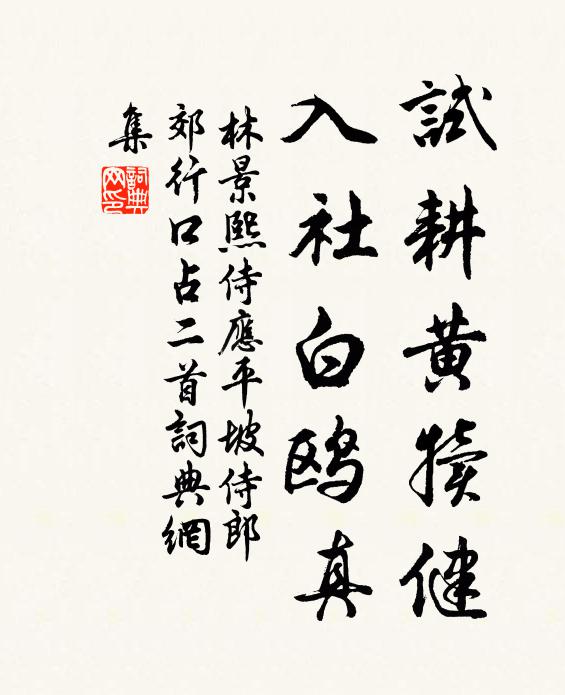 試耕黄犢健
入社白鸥真
林景熙侍應平坡侍郎
郊行口占二首詞典網
集
詞典
网印